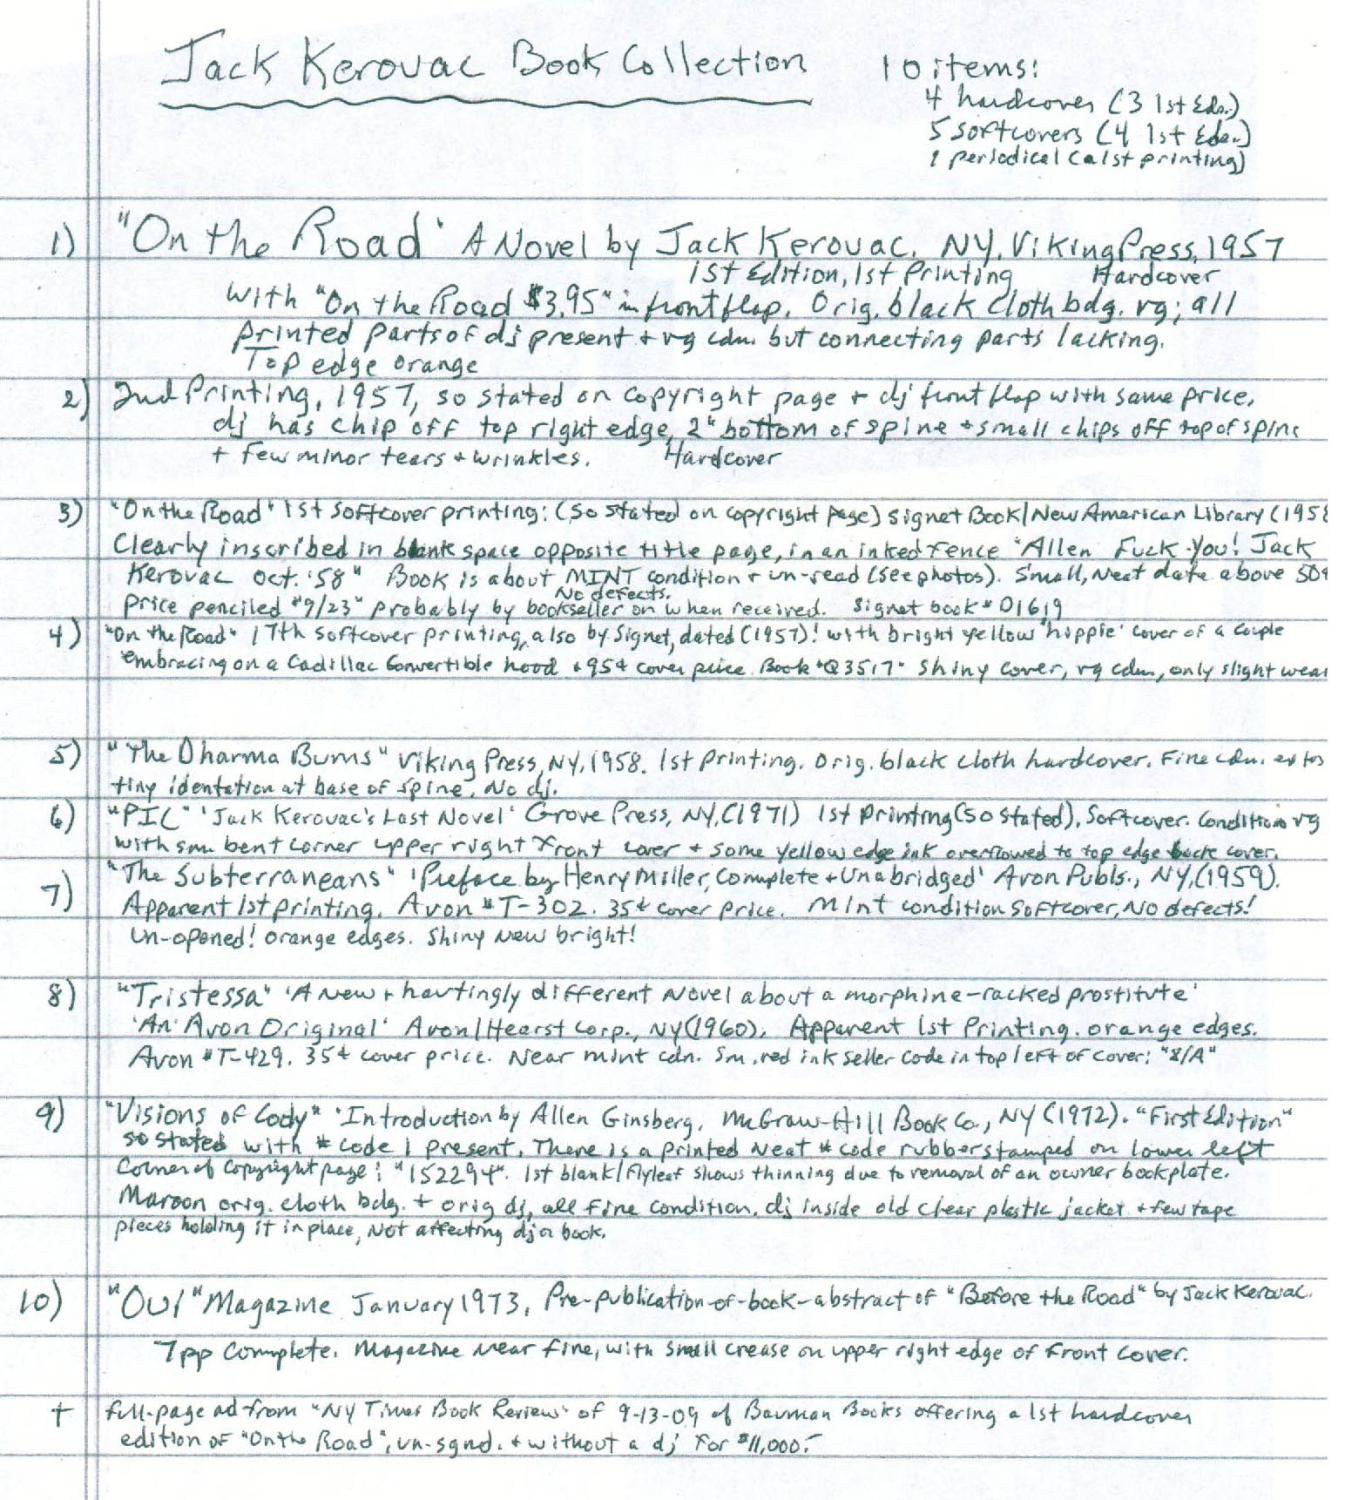 Jack Kerouac Book Collection
10 items:
4 hardcover (3 1st Eds.)
5 softcovers (4 1st Eds.)
1 periodical (a 1st printing)
1) "On the Road' A Novel by Jack Kerouac. NY. Viking Press, 1957
1st Edition, 1st Printing Hardcover
With "On the Road $3.95" in front flap. Orig. black cloth bdg. vg; all
printed parts of dj present + vg cdn. but connecting parts lacking.
Top edge orange
2) 2nd Printing, 1957, so stated on copyright page + dj front flap with same price,
dj has chip off top right edge, 2" bottom of spine + small chips off top of spine
+ few minor tears + wrinkles. Hardcover
3) "On the Road" 1st softcover printing: (so stated on copyright page) Signet Book/New American Library (1958
Clearly inscribed in blank space opposite title page, in an inked fence "Allen Fuck-You! Jack
Kerouac Oct. '58" Book is about MINT condition + un-read (see photos). Small, neat date above 50¢
No defects.
price penciled "9/23" probably by bookseller on when received. Signet book # D1619
4) "On the Road" 17th softcover printing, also by Signet, dated (1957)! with bright yellow 'hippie' cover of a couple
embracing on a Cadillac Convertible hood + 95¢ cover price. Book "Q3517" Shiny cover, vg cdn, only slight wear
5) "The Dharma Bums" Viking Press, NY, 1958. 1st Printing. Orig. black cloth hardcover. Fine cdn.
tiny identation at base of spine. No dj.
6) "PIC" 'Jack Kerouac's Last Novel' Grove Press, NY, (1971) 1st Printing (so stated), Softcover. Condition vg
with sm. bent corner upper right front cover + some yellow edge ink overflowed to top edge back cover.
7) "The Subterraneans" 'Preface by Henry Miller, Complete + Unabridged' Avon Publs., NY, (1959).
Apparent 1st printing. Avon #T-302. 35¢ cover price. Mint condition Softcover, No defects!
Un-opened! orange edges. Shiny New bright!
8) "Tristessa" 'A New + hautingly different Novel about a morphine-racked prostitute'
'An Avon Original' Avon/Hearst Corp., NY (1960). Apparent 1st Printing. orange edges.
Avon #T-429. 35¢ cover price. Near mint cdn. Sm. red ink seller code in top left of cover: "8/A"
9) "Visions of Cody" 'Introduction by Allen Ginsberg. McGraw-Hill Book Co., NY (1972). "First Edition"
so stated with # code 1 present. There is a printed neat # code rubberstamped on lower left
corner of copyright page: "152294". 1st blank/flyleaf shows thinning due to removal of an owner bookplate.
Maroon orig. cloth bdg. + orig dj, all fine condition. dj inside old clear plastic jacket + few tape
pieces holding it in place, not affecting dj or book.
10) "OUI" Magazine January 1973, Pre-publication-of-book-abstract of "Before the Road" by Jack Kerouac.
7pp complete. Magazine near fine, with small crease on upper right edge of front cover.
+ full-page ad from "NY Times Book Review" of 9-13-09 of Bauman Books offering a 1st hardcover
edition of "On the Road", un-sgnd. + without a dj for $11,000.-